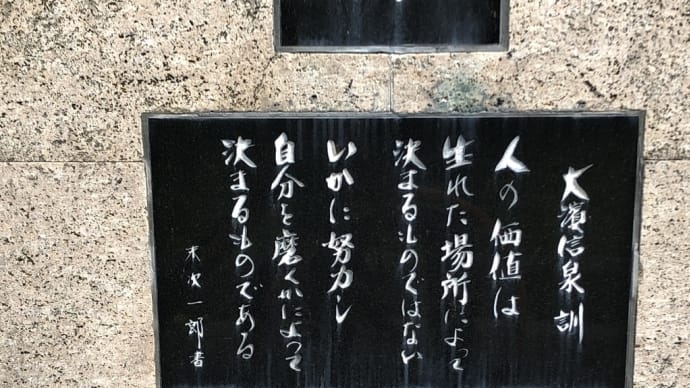 大濱信泉 訓
人の価値は
生れた場所によって
決まるものではない
いかに努力し
自分を磨くかによって
決まるものである
末次一郎書